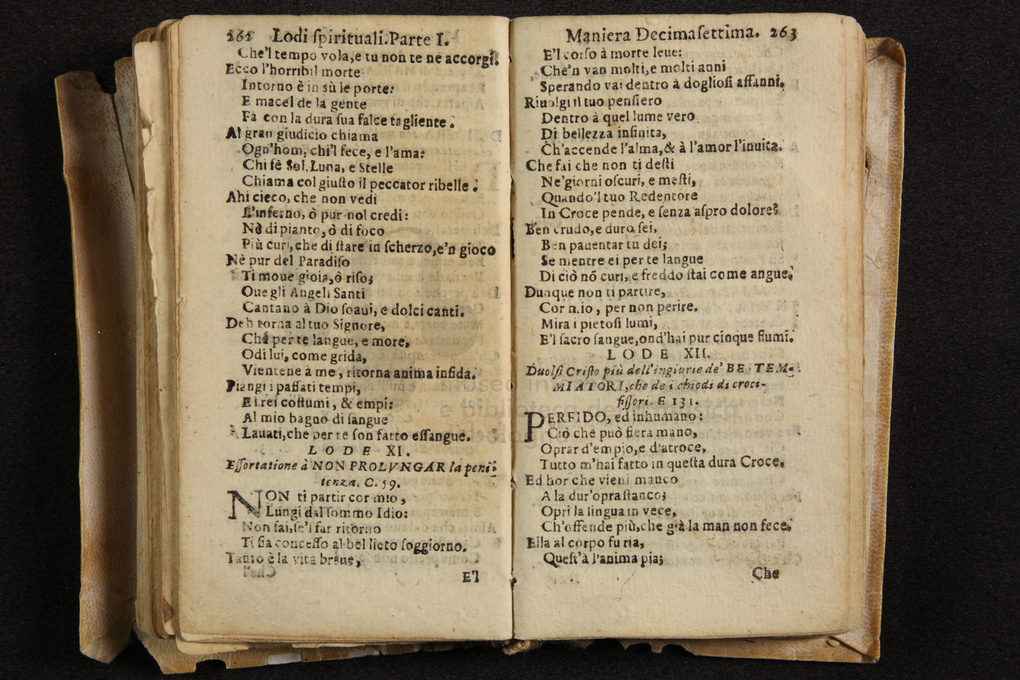 262 Lodi ſpirituali.Parte I.
Che'l tempo vola,e tu non te ne accorgi.
Ecco l'horribil morte
Intorno è in sù le porte:
E macel de la gente
Fà con la dura ſua falce tagliente.
Al gran giudicio chiama
Ogn'hom, chi'l fece, e l'ama:
Chi fè Sol,Luna, e Stelle
Chiama col giuſto il peccator ribelle.
Ahi cieco, che non vedi
L'inferno, ò pur nol credi:
Nè di pianto, ò di foco
Più curi, che di ſtare in ſcherzo,e'n gioco
Nè pur del Paradiſo
Ti moue gioia,ò riſo;
Oue gli Angeli Santi
Cantano à Dio ſoaui, e dolci canti.
Deh torna al tuo Signore,
Che per te langue, e more,
Odi lui, come grida,
Vientene à me, ritorna anima infida.
Piangi i paſſati tempi,
E i rei coſtumi, & empi:
Al mio bagno di ſangue
Lauati,che per te ſon fatto eſſangue.
LODE XI.
Eſſortatione à NON PROLVNGAR la peni-
tenza. C. 59.
NON ti partir cor mio,
Lungi dal ſommo Idio:
Non ſai,ſe'i far ritorno
Ti ſia conceſſo al bel lieto ſoggiorno.
Tanto è la vita breue,
E'l
Maniera Decimaſettima. 263
E'l corſo à morte leue:
Che'n van molti,e molti anni
Sperando vai dentro à doglioſi affanni.
Riuolgi il tuo penſiero
Dentro à quel lume vero
Di bellezza infinita,
Ch'accende l'alma,& à l'amor l'inuita.
Che fai che non ti deſti
Ne'giorni oſcuri, e meſti,
Quando'l tuo Redentore
In Croce pende, e ſenza aſpro dolore?
Ben crudo,e duro ſei,
Ben pauentar tu dei;
Se mentre ei per te langue
Di ciò nõ curi, e freddo ſtai come angue.
Dunque non ti partire,
Cor mio, per non perire.
Mira i pietoſi lumi,
E'l ſacro ſangue,ond'hai pur cinque fiumi.
LODE XII.
Duolſi Criſto più dell'ingiurie de' BESTEM-
MIATORI,che de i chiodi di croci-
fiſſori. E 131.
PERFIDO, ed inhumano:
Ciò che può fiera mano,
Oprar d'empio,e d'atroce,
Tutto m'hai fatto in queſta dura Croce.
Ed hor che vieni manco
A la dur'opra ſtanco;
Opri la lingua in vece,
Ch'offende più,che già la man non fece.
Ella al corpo furia,
Queſt'à l'anima pia;
Che